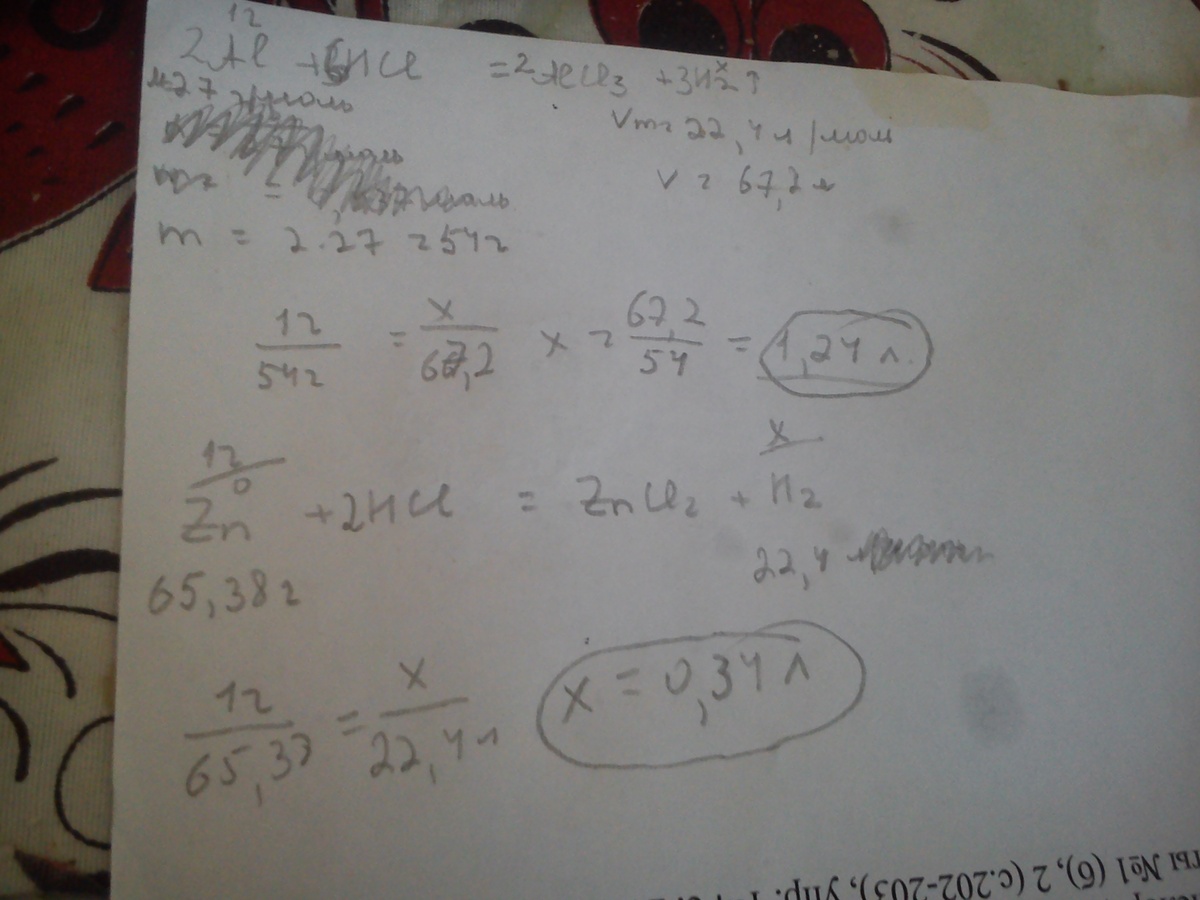 1г
2Al + 6HCl = 2AlCl3 + 3H2↑
x
M 27 г/моль
Vm= 22,4 л/мол
V = 67,2 л
m = 2·27 = 54г
1г/54г = x/67,2 x = 67,2/54 = 1,24 л.
1г x
Zn⁰ + 2HCl = ZnCl2 + H2
65,38г 22,4
1г/65,37 = x/22,4л x = 0,34 л
ты №1 (б), 2 (с.202-203), упр. 1